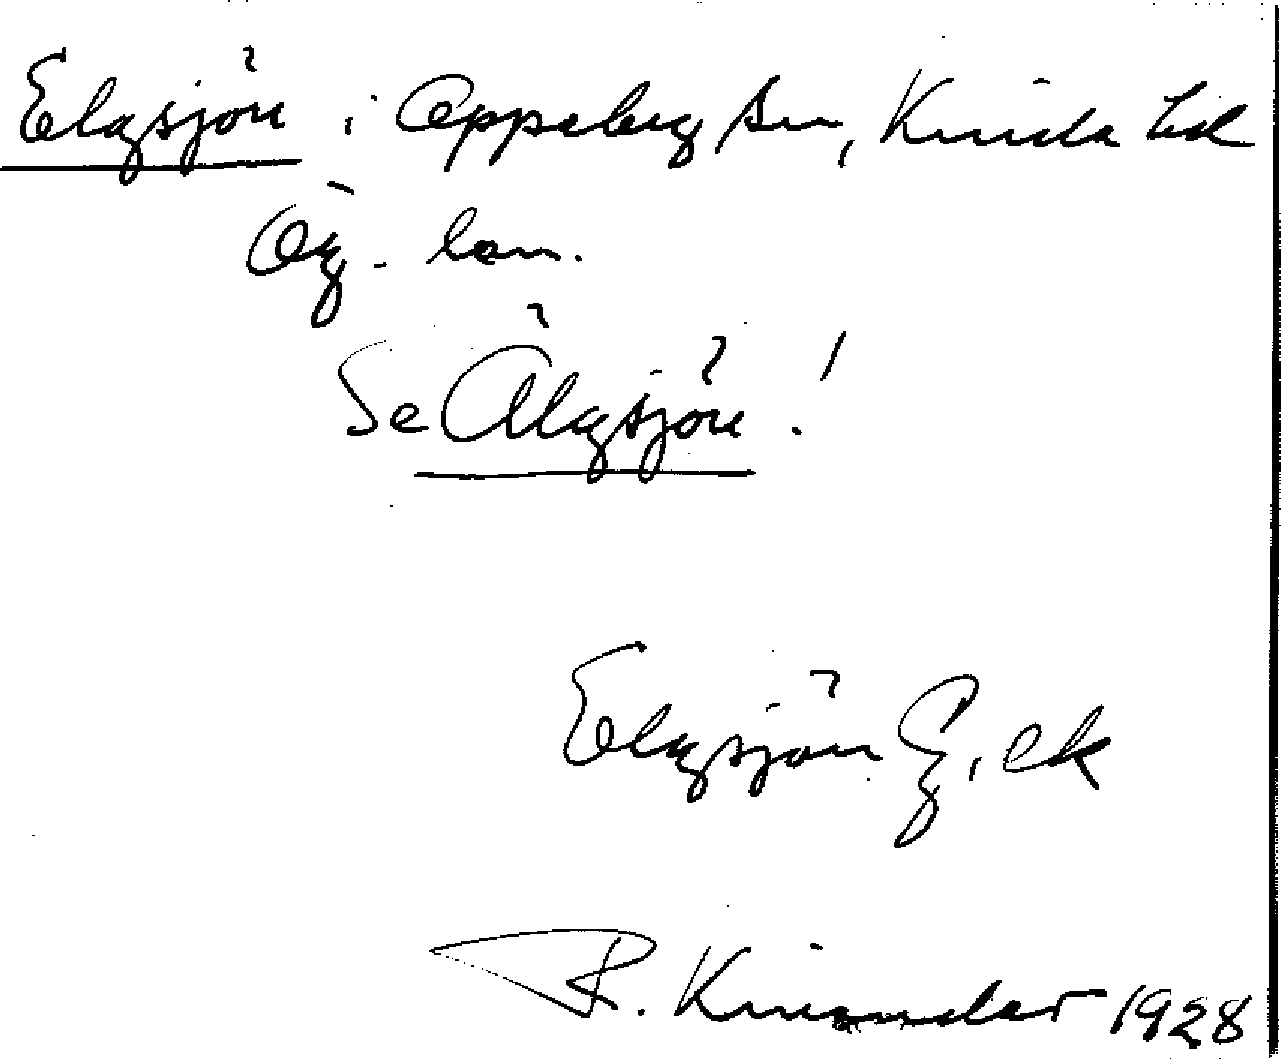 Elgsjön i Oppeby sn, Kinda hd
Ög. län.
Se Älgsjön!
Elgsjön G, ek
R. Kinander 1928